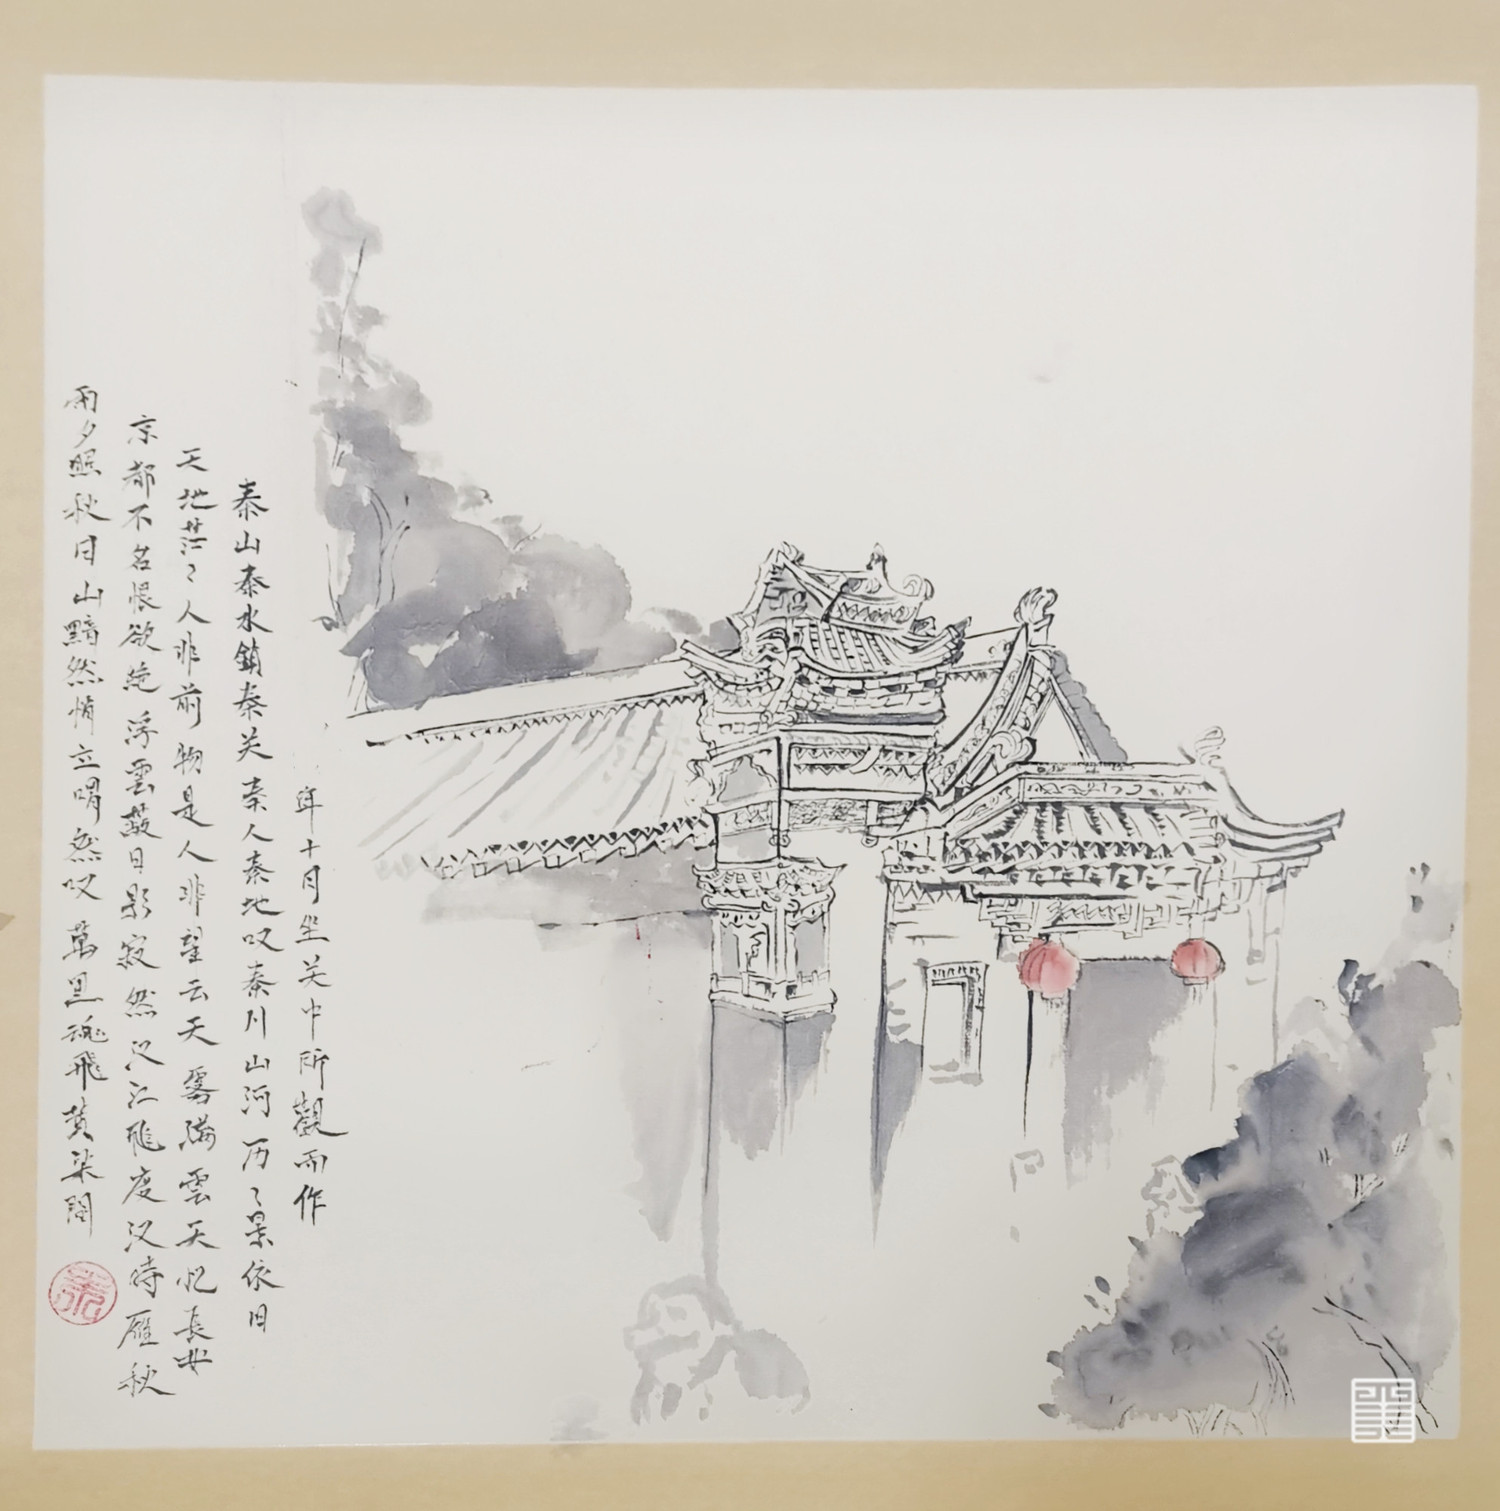 年十月坐关中所觀而作
秦山秦水鎖秦关秦人秦地叹秦川山河历々景依旧
天地茫々人非前物是人非望云天雾满雲天忆長安
京都不名恨欲绝浮雲蔽日影寂然汉江飛度汉時雁秋
雨夕照秋月山黯然悄立喟然叹萬里魂飛黄